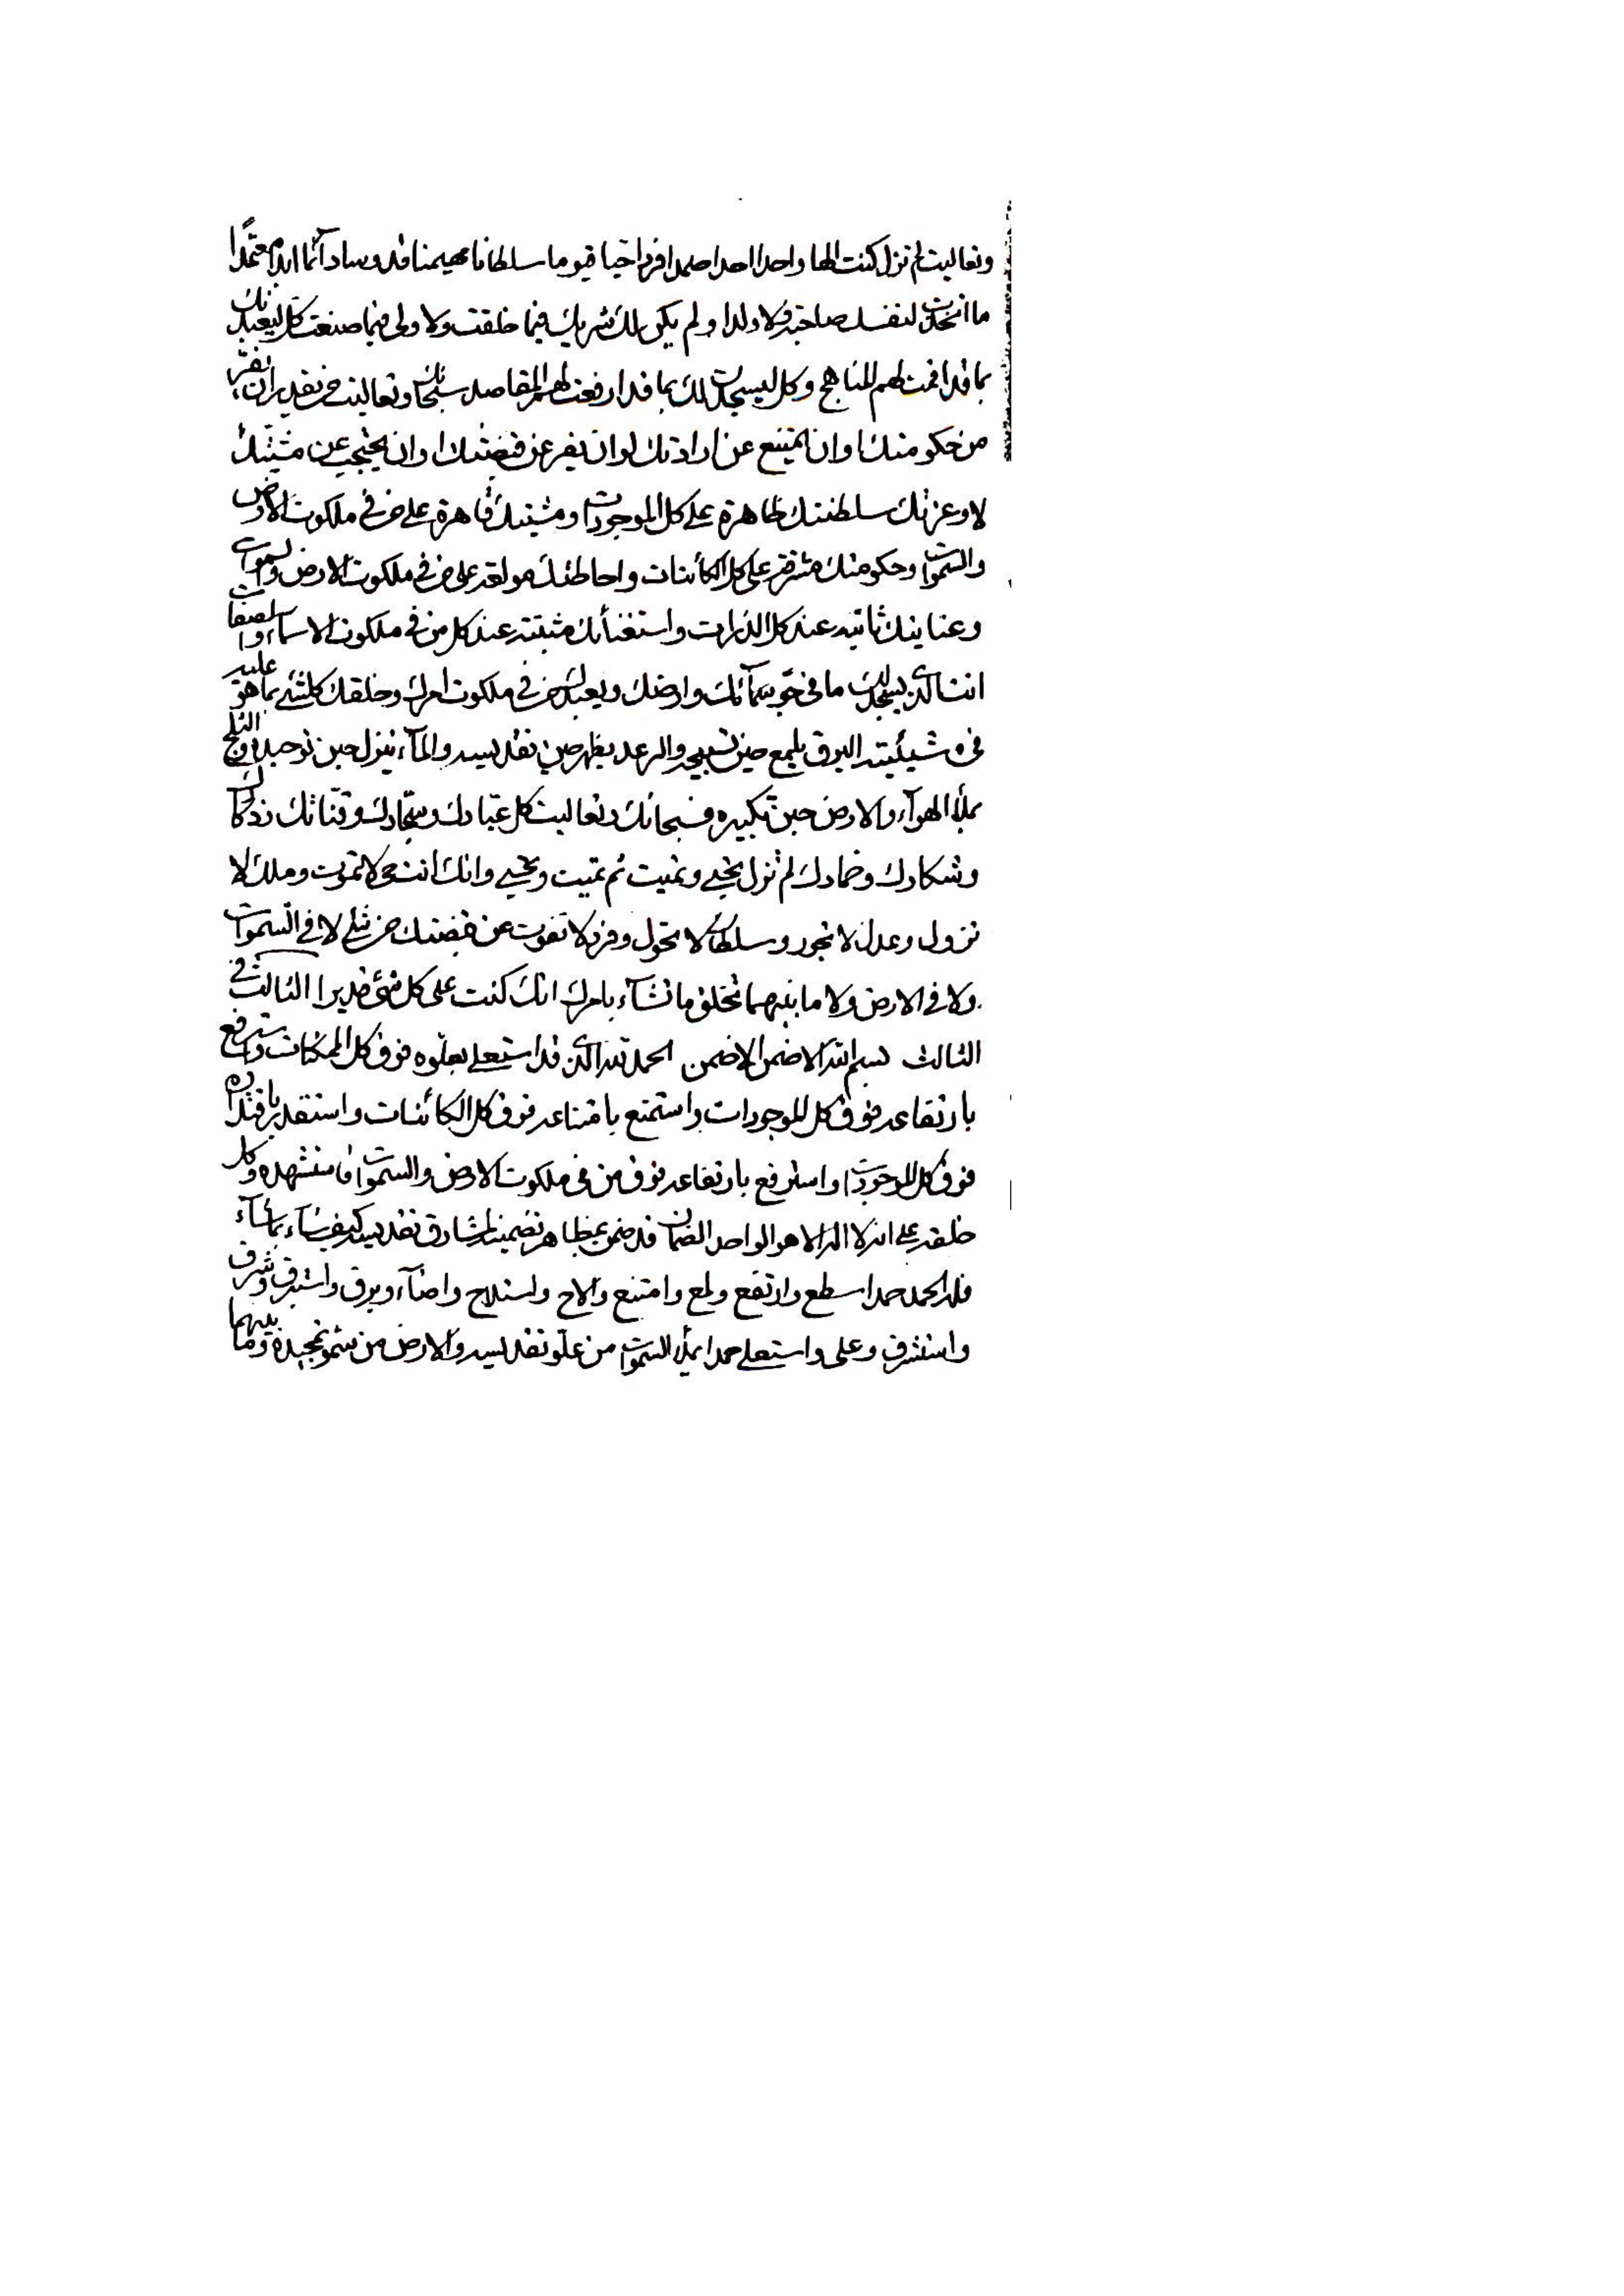 وتعاليت لم تزل كنت الها واحدا احدا صمدا فردا حيا قيوما سلطانا مهيمنا قدوسا دآئما ابدا معتمدا
ما اتخذت لنفسك صاحبة ولا ولدا ولم يكن لك شريك فيما خلقت ولا ولى فيما صنعت كل ليعبدنك
بما قد اقمت لهم المناهج وكل ليسجدن لك بما قد ارفعت لهم المقاصد سبحانك وتعاليت من يقدر ان يفر
من حكومتك او ان يمتنع عن ارادتك او ان يفر عن قبضتك او ان يحتجب عن مشيتك
لا وعزتك سلطنتك ظاهرة على كل الموجودات ومشيتك قاهرة على من في ملكوت الارض
والسموات وحكومتك مشرقة على كل الكآئنات واحاطتك على من في ملكوت الارض والسموات
وعنايتك ثابتة عند كل الذرات واستغنآئك مثبتة عند كل من في ملكوت الاسمآء والصفات
انت الذى يسجد لك ما في جو سمآئك وارضك ويعبدك من في ملكوت امرك وخلقك كلشئ بما هو عليه
في شيئيته البرق يلمع حين تسبيحه والرعد يظهر حين تقديسه والمآء ينزل حين توحيده والثلج
يملأ الهوآء والارض حين تكبيره فسبحانك وتعاليت كل عبادك وسجادك وقناتك وذكارك
وشكارك وحمادك لم تزل تحيى وتميت ثم تميت وتحيى وانك انت حى لا تموت وملك لا
تزول وعدل لا تجور وسلطان لا تحول وفرد لا تفوت عن قبضتك من شئ لا في السموات
ولا في الارض ولا ما بينهما تخلق ما تشآء بامرك انك كنت على كل شئ قديرا الثالث في
الثالث بسم الله الاضمن الاضمن الحمد لله الذى قد استعلى بعلوه فوق كل الممكنات واسترفع
بارتفاعه فوق كل الموجودات واستمنع بامتناعه فوق كل الكآئنات واستقدر باقتداره
فوق كل الموجودات واسترفع بارتفاعه فوق من في ملكوت الارض والسموات فاستشهده وكل
خلقه على انه لا اله الا هو الواحد الضمان قد ضمن بمظاهر تضمينه لمشارق تقديسه كيف يشآء بما يشآء
فله الحمد حمدا سطع وارتفع ولمع وامتنع والاح واستلاح واضآء وبرق واستبرق وشرف
واستشرف وعلى واستعلى حمدا يملأ السموات من علو تقديسه والارض من سمو تمجيده وما بينهما